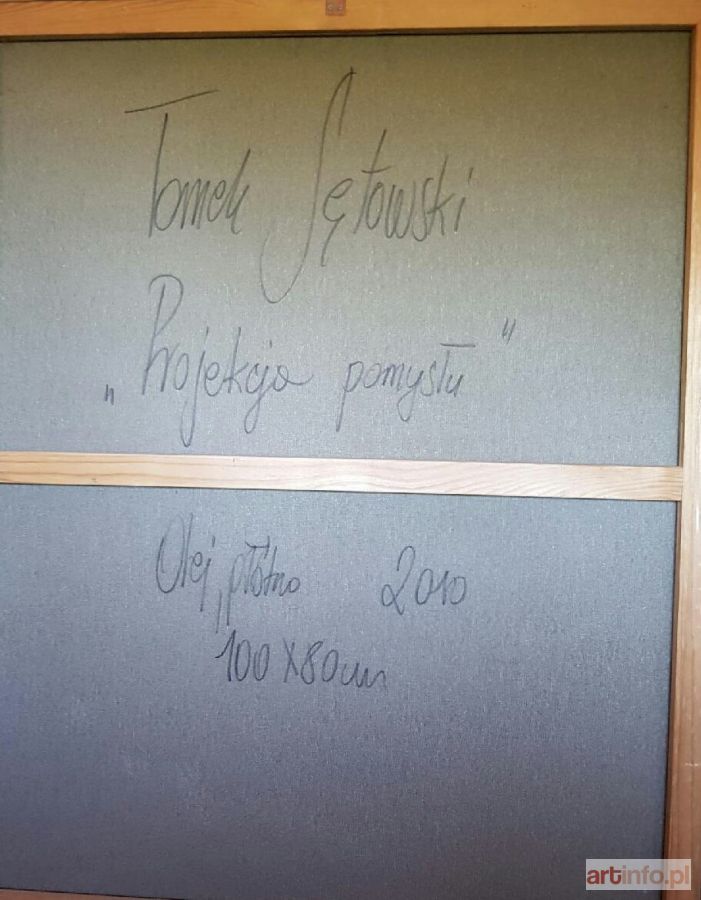 Tomek Sętowski
„Projekcja pomysłu"
Olej, płótno 2010
100 x 80 cm
artinfo.pl